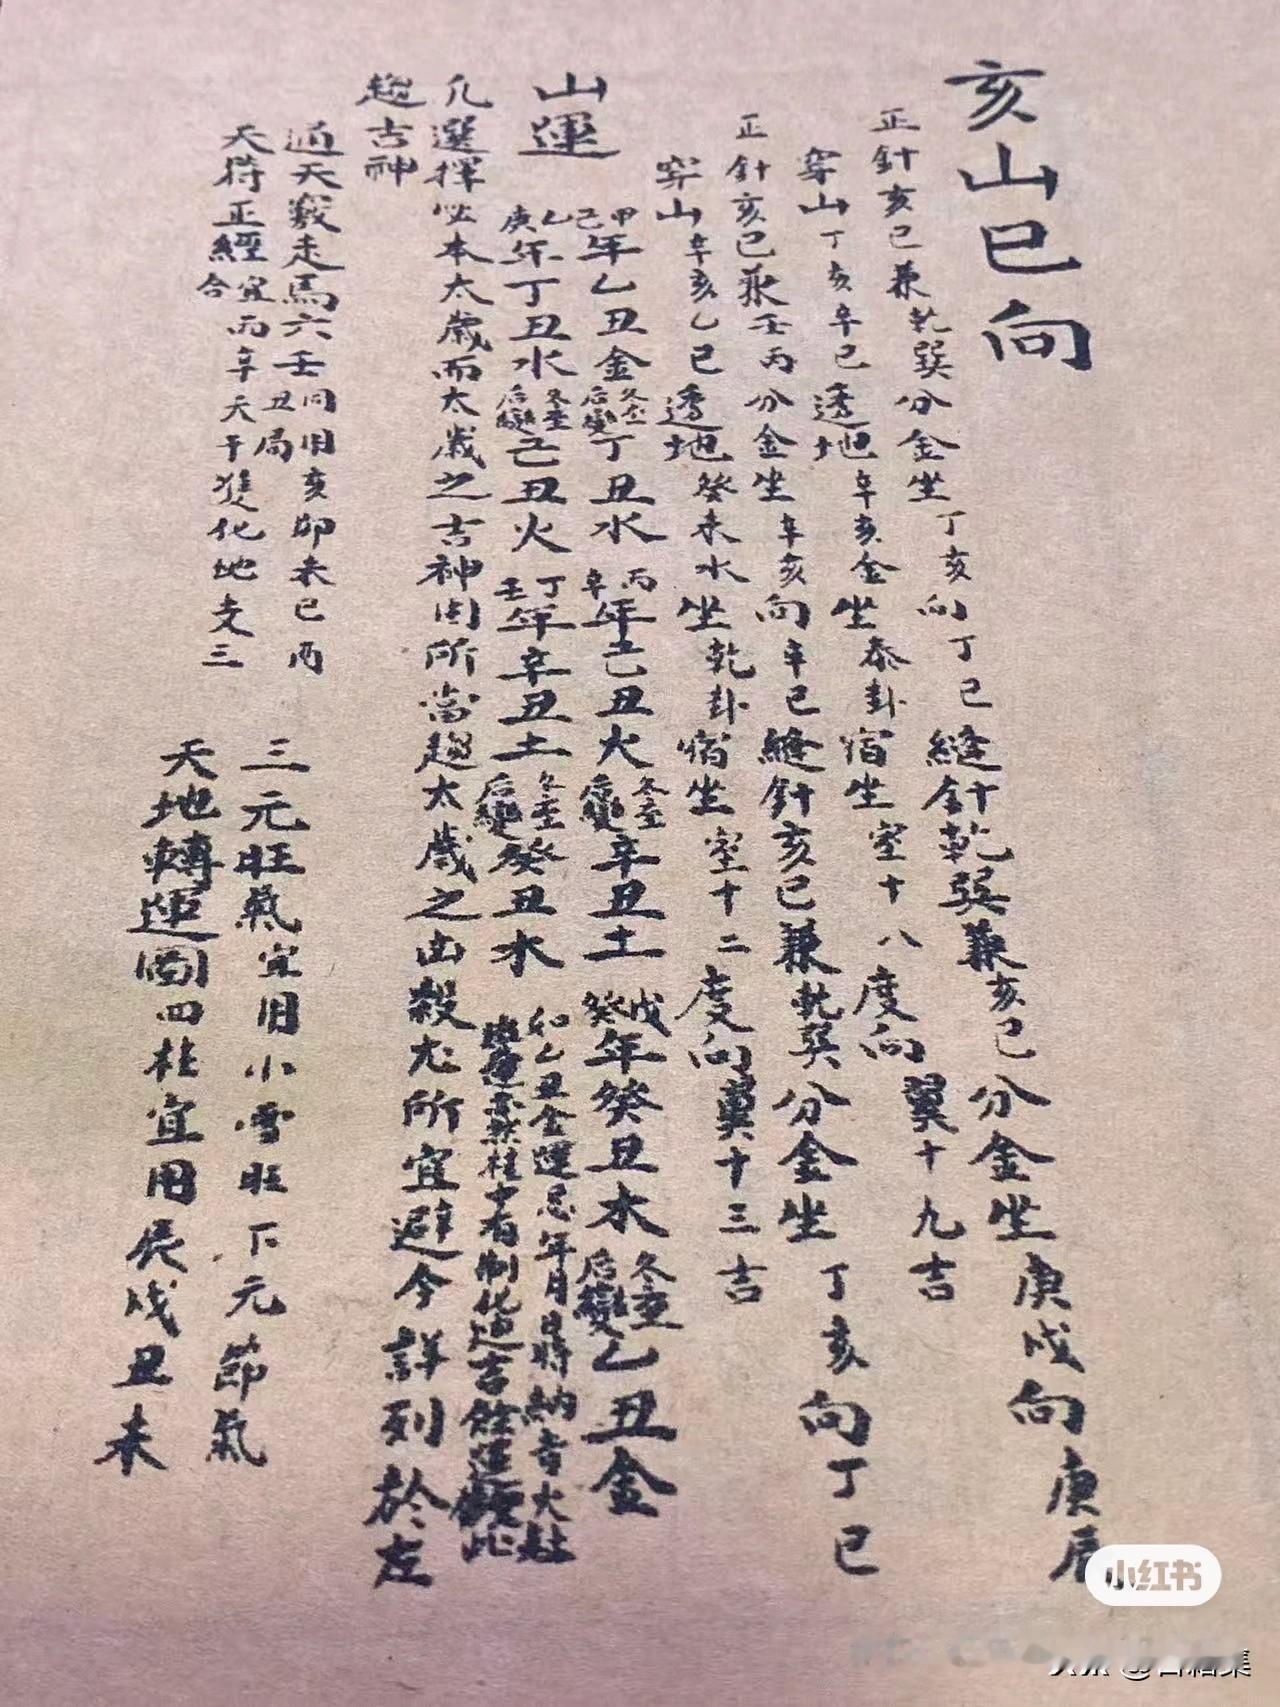 亥山巳向
正針亥巳兼乾巽分金坐丁亥向丁巳縫針乾巽兼亥巳分金坐庚戌向庚辰
穿山丁亥辛巳透地辛亥金坐泰卦宿坐室十八度向翼十九吉
正針亥巳兼壬丙分金坐辛亥向辛巳縫針亥巳兼乾巽分金坐丁亥向丁巳
穿山辛亥乙巳透地癸未水坐乾卦宿坐室十二度向翼十三吉
山運
甲己年乙丑金冬至后變丁丑水丙辛年己丑火冬至后變辛丑土戊癸年癸丑水冬至后變乙丑金
乙庚年丁丑水冬至后變己丑火丁壬年辛丑土冬至后變癸丑水
如乙丑金運忌年月日時納音火尅
山運若柱中有制化迪吉餘運倣此
凡選擇必本太歲而太歲之吉神固所當趨太歲之凶殺尤所宜避今詳列於左
趨吉神
通天竅走馬六壬同用亥卯未巳丙丑局
天符正經宜丙辛天干雙化地支三合
三元旺氣宜用小雪旺下元節氣
天地轉運圖四柱宜用辰戌丑未
小红书